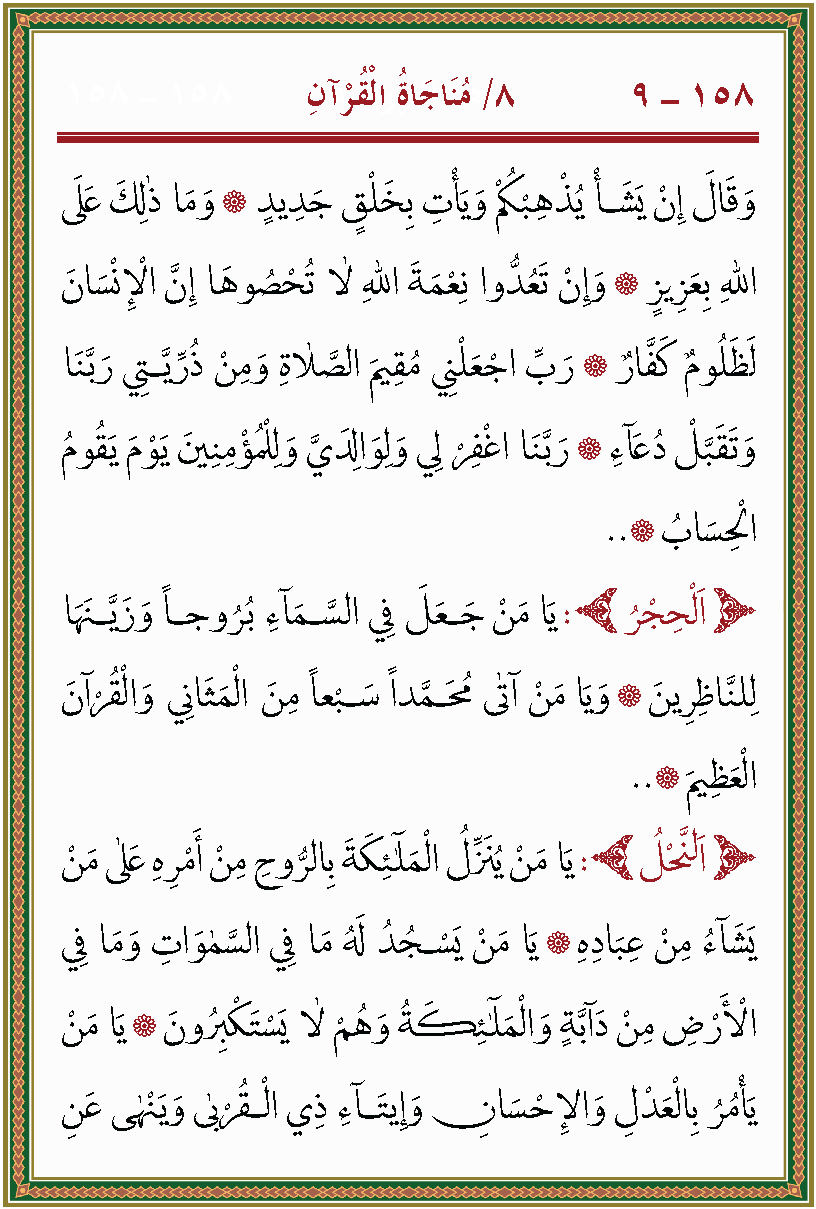 ١٥٨ ـ ٩ ٨/ مُنَاجَاةُ الْقُرْآنِ ١٥٨ ١٥٨
وَقَالَ إِنْ يَشَـأْ يُذْهِبْكُمْ وَيَأْتِ بِخَلْقٍ جَدِيدٍ ۞ وَمَا ذٰلِكَ عَلَى
اللهِ بِعَزِيزٍ ۞ وَإِنْ تَعُدُّوا نِعْمَةَ اللهِ لاٰ تُحْصُوهَا إِنَّ الْإِنْسَانَ
لَظَلُومٌ كَفَّارٌ ۞ رَبِّ اجْعَلْنِي مُقِيمَ الصَّلاٰةِ وَمِنْ ذُرِّيَّـتِي رَبَّنَا
وَتَقَبَّلْ دُعَآءِ ۞ رَبَّنَا اغْفِرْ لِي وَلِوَالِدَيَّ وَلِلْمُؤْمِنِينَ يَوْمَ يَقُومُ
الْحِسَابُ ۞..
﴿ اَلْحِجْرُ ﴾: يَا مَنْ جَـعَـلَ فِي السَّـمَآءِ بُرُوجـاً وَزَيَّـنَهَا
لِلنَّاظِرِينَ ۞ وَيَا مَنْ آتٰى مُحَـمَّداً سَـبْعاً مِنَ الْمَثَانِي وَالْقُرْآنَ
الْعَظِيمَ ۞..
﴿ اَلنَّحْلُ ﴾: يَا مَنْ يُنَزِّلُ الْمَلٰٓئِكَةَ بِالرُّوحِ مِنْ أَمْرِهِ عَلٰى مَنْ
يَشَآءُ مِنْ عِبَادِهِ ۞ يَا مَنْ يَسْـجُدُ لَهُ مَا فِي السَّمٰوَاتِ وَمَا فِي
الْأَرْضِ مِنْ دَآبَّةٍ وَالْمَلٰٓئِكَةُ وَهُمْ لاٰ يَسْتَكْبِرُونَ ۞ يَا مَنْ
يَأْمُرُ بِالْعَدْلِ وَالإِحْسَانِ وَإِيتَـآءِ ذِي الْـقُرْبٰى وَيَنْهٰى عَنِ